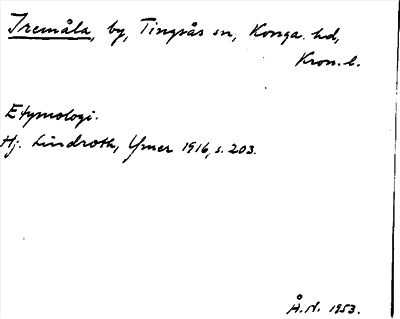 Iremåla, by, Tingsås sn, Konga hd,
Kron. l.
Etymologi.
Hj. Lindroth, Ymer 1916, s. 203.
Å. N. 1953.